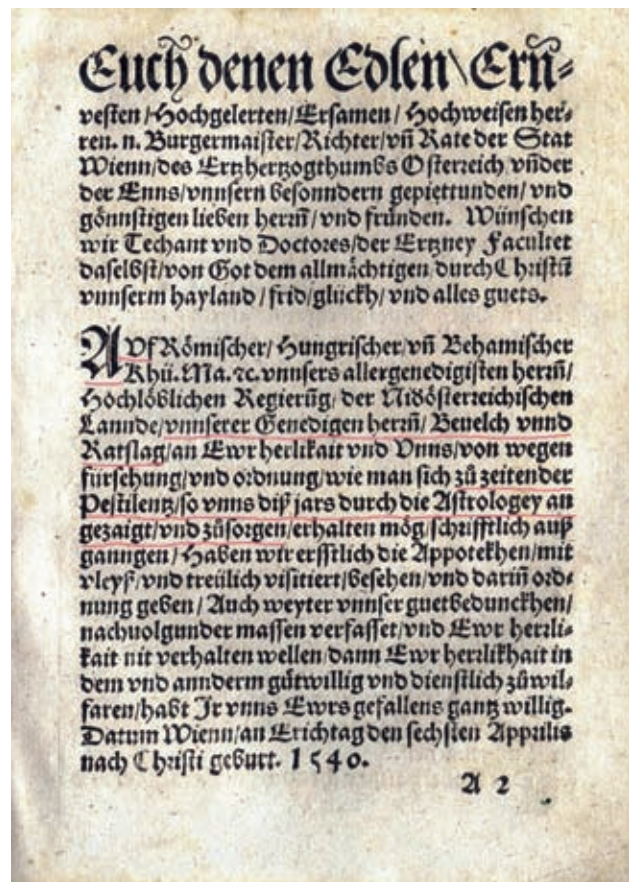 Euch denen Edlen / Ern̄⸗
vesten / Hochgelerten / Ersamen / Hochweisen her⸗
ren. n. Burgermaister / Richter / vn̄ Rate der Stat
Wienn / des Ertzhertzogthumbs Osterreich vn̄der
der Enns / vnnsern besonndern gepiettunden / vnd
gönnstigen lieben herrn̄ / vnd fründen. Wünschen
wir Techant vnd Doctores / der Ertzney Facultet
daselbst / von Got dem allmächtigen durch Christū
vnnserm hayland / frid / glückh / vnd alles guets.
AVf Römischer / Hungrischer / vn̄ Behamischer
Khü. Ma. ꝛc. vnnsers allergenedigisten herrn̄ /
Hochlöblichen Regierūg / der Nidösterreichischen
Lannde / vnnserer Genedigen herrn̄ / Beuelch vnnd
Ratslag / an Ewr herlikait vnd Vnns / von wegen
fürsehung / vnd ordnung / wie man sich zů zeiten der
Pestilentz / so vnns diß jars durch die Astrologey an
gezaigt / vnd zůsorgen / erhalten mög / schrifftlich auß
ganngen / Haben wir erstlich die Appotekhen / mit
vleyß / vnd treülich visitiert / besehen / vnd darin̄ ord⸗
nung geben / Auch weyter vnnser guetbedunckhen /
nachuolgunder massen verfasset / vnd Ewr herrli⸗
kait nit verhalten wellen / dann Ewr herrlikhait in
dem vnd annderm gůtwillig vnd dienstlich zůwil⸗
faren / habt Ir vnns Ewrs gefallens gantz willig.
Datum Wienn / an Erichtag den sechsten Apprilis
nach Christi geburt. 1540.
A 2